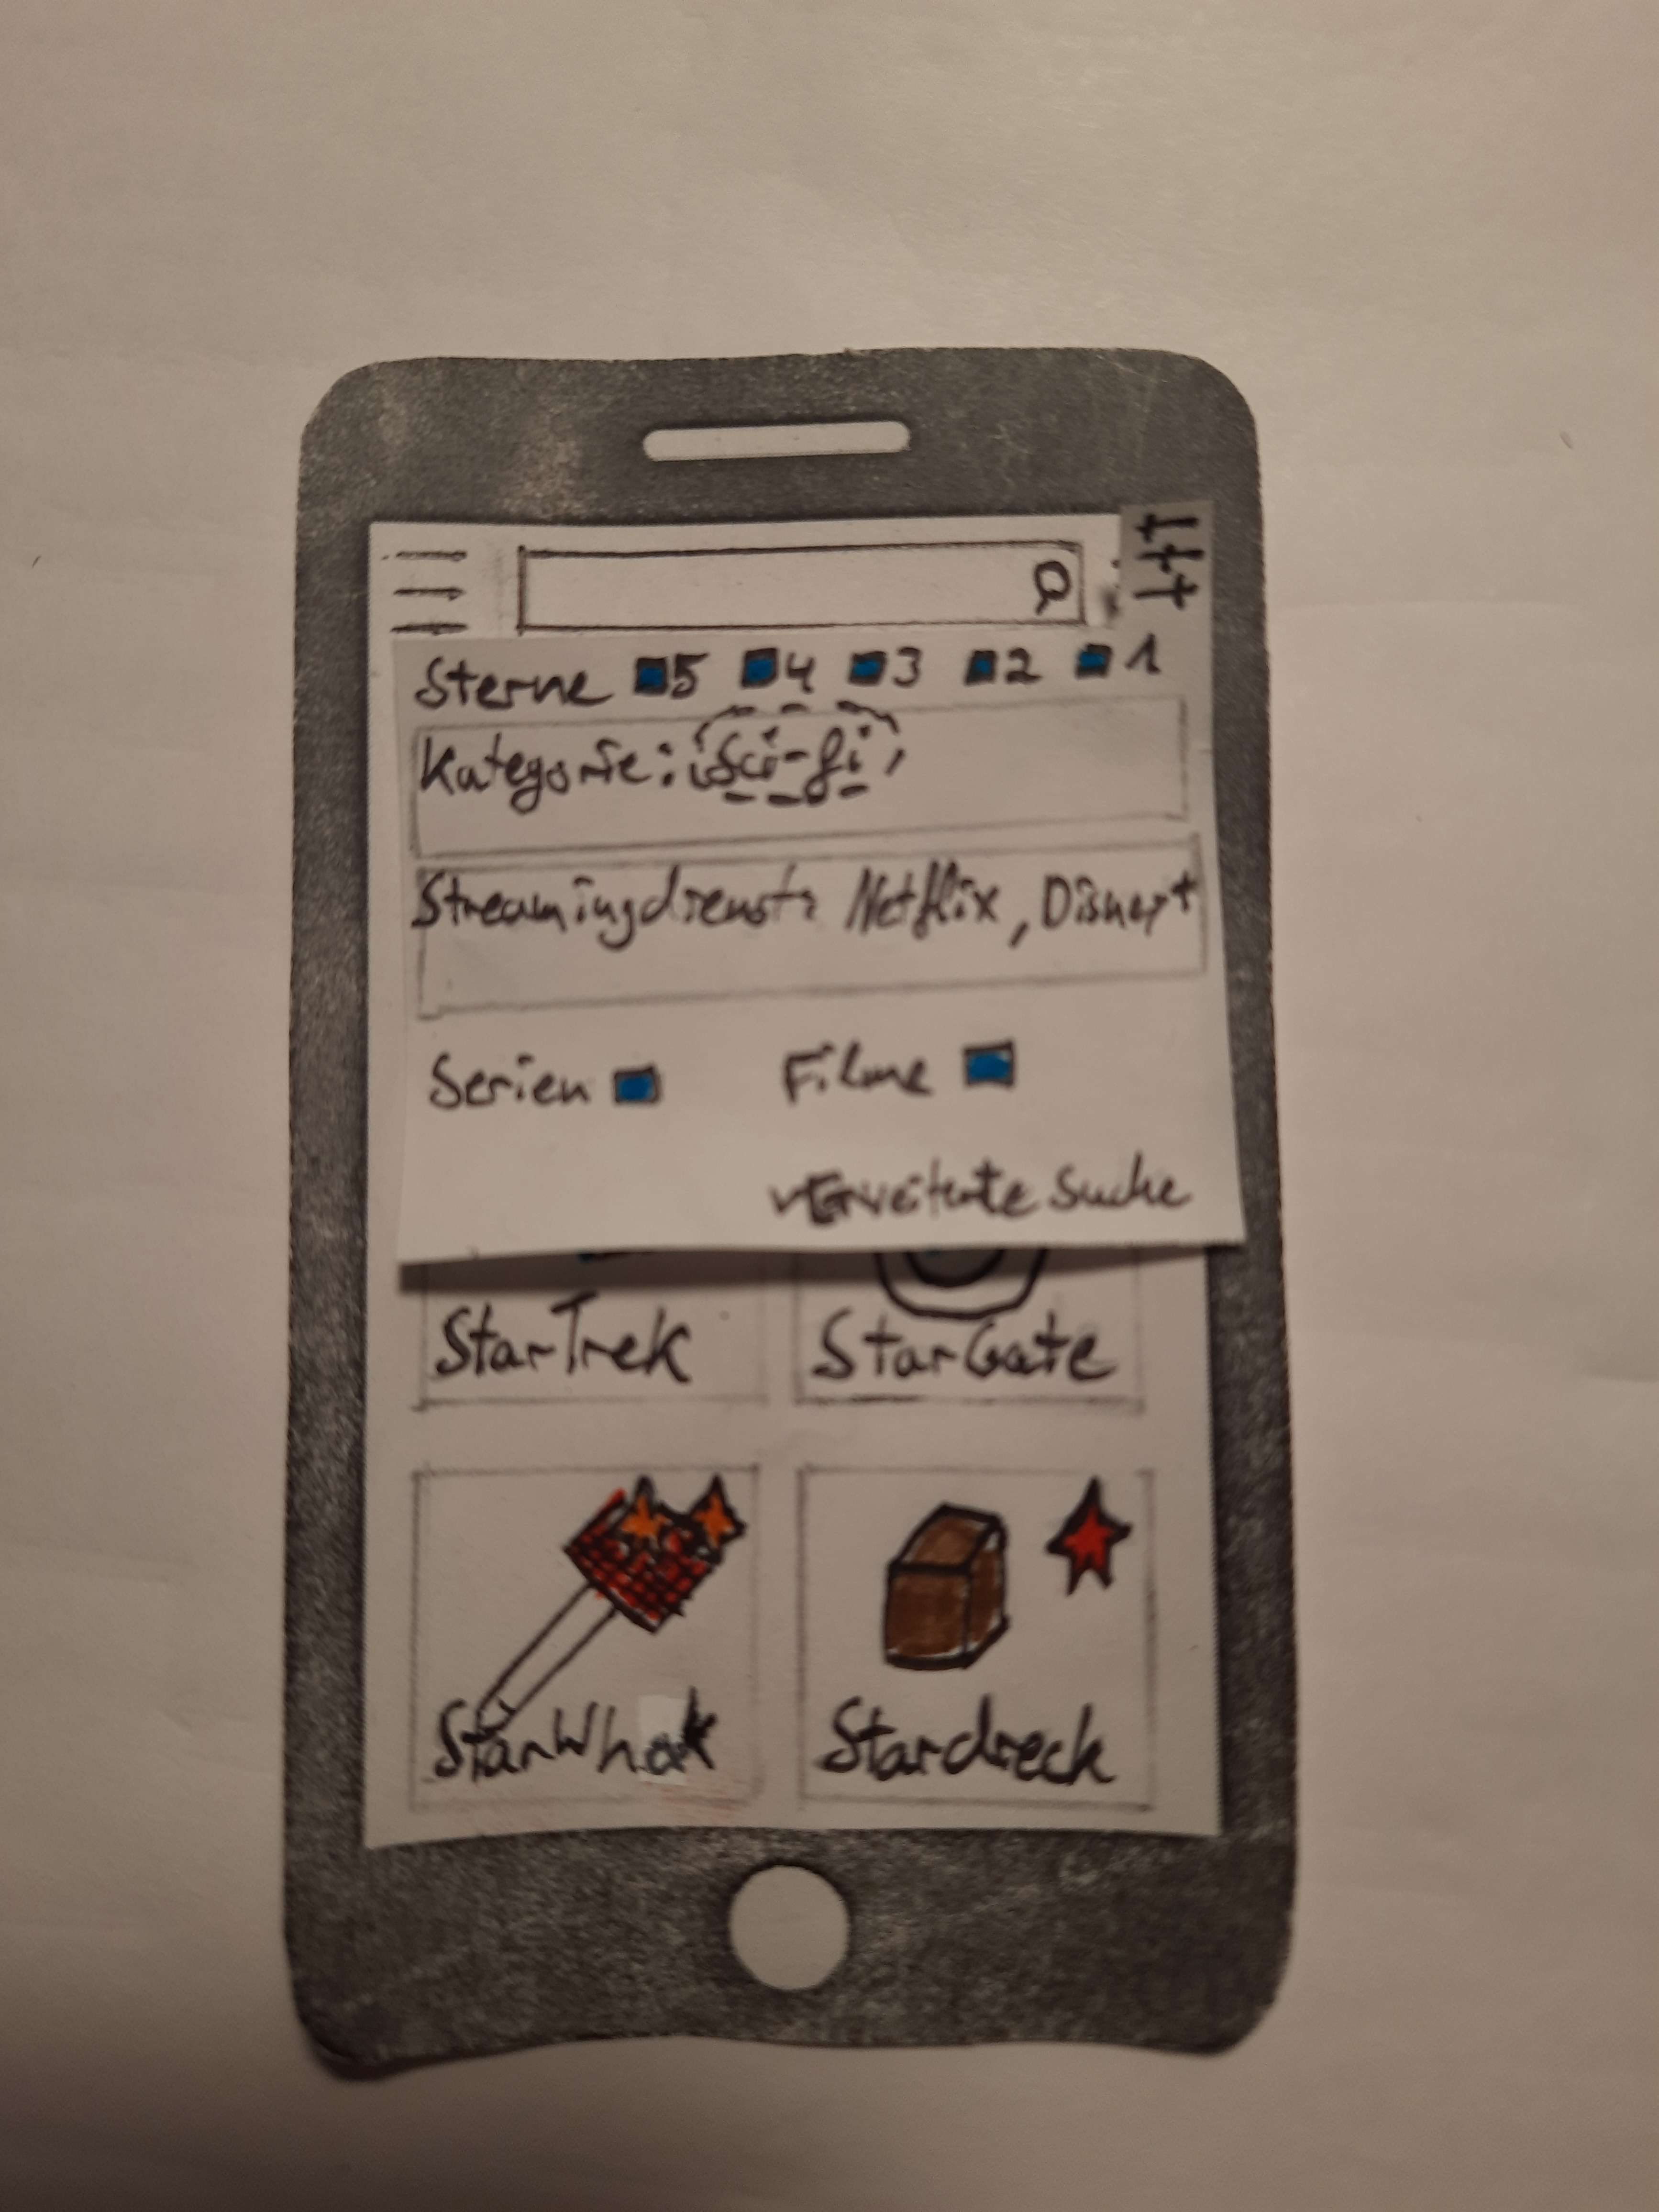 Sterne 5 4 3 2 1
Kategorie: Sci-fi
Streamingdienst: Netflix, Disney+
Serien Filme
Suche
StarTrek StarGate
StarWhak Stardreck